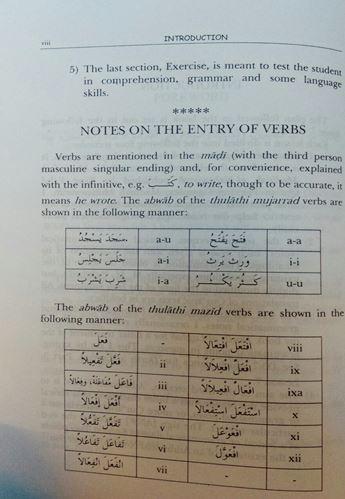 viii
INTRODUCTION
5) The last section, Exercise, is meant to test the student
in comprehension, grammar and some language
skills.
*****
NOTES ON THE ENTRY OF VERBS
Verbs are mentioned in the māḍī (with the third person
masculine singular ending) and, for convenience, explained
with the infinitive, e.g. كَتَبَ, to write, though to be accurate, it
means he wrote. The abwāb of the thulāthi mujarrad verbs are
shown in the following manner:
سَجَدَ يَسْجُدُ a-u فَتَحَ يَفْتَحُ a-a
جَلَسَ يَجْلِسُ a-i وَرِثَ يَرِثُ i-i
شَرِبَ يَشْرَبُ i-a كَثُرَ يَكْثُرُ u-u
The abwāb of the thulāthi mazīd verbs are shown in the
following manner:
فَعَلَ - افْتَعَلَ افْتِعَالاً viii
فَعَّلَ تَفْعِيلاً ii افْعَلَّ افْعِلاَلاً ix
فَاعَلَ مُفَاعَلَةً، وَفِعَالاً iii افْعَالَّ افْعِيلاَلاً ixa
أَفْعَلَ إِفْعَالاً iv اسْتَفْعَلَ اسْتِفْعَالاً x
تَفَعَّلَ تَفَعُّلاً v افْعَوْعَلَ xi
تَفَاعَلَ تَفَاعُلاً vi افْعَوَّلَ xii
انْفَعَلَ انْفِعَالاً vii - -